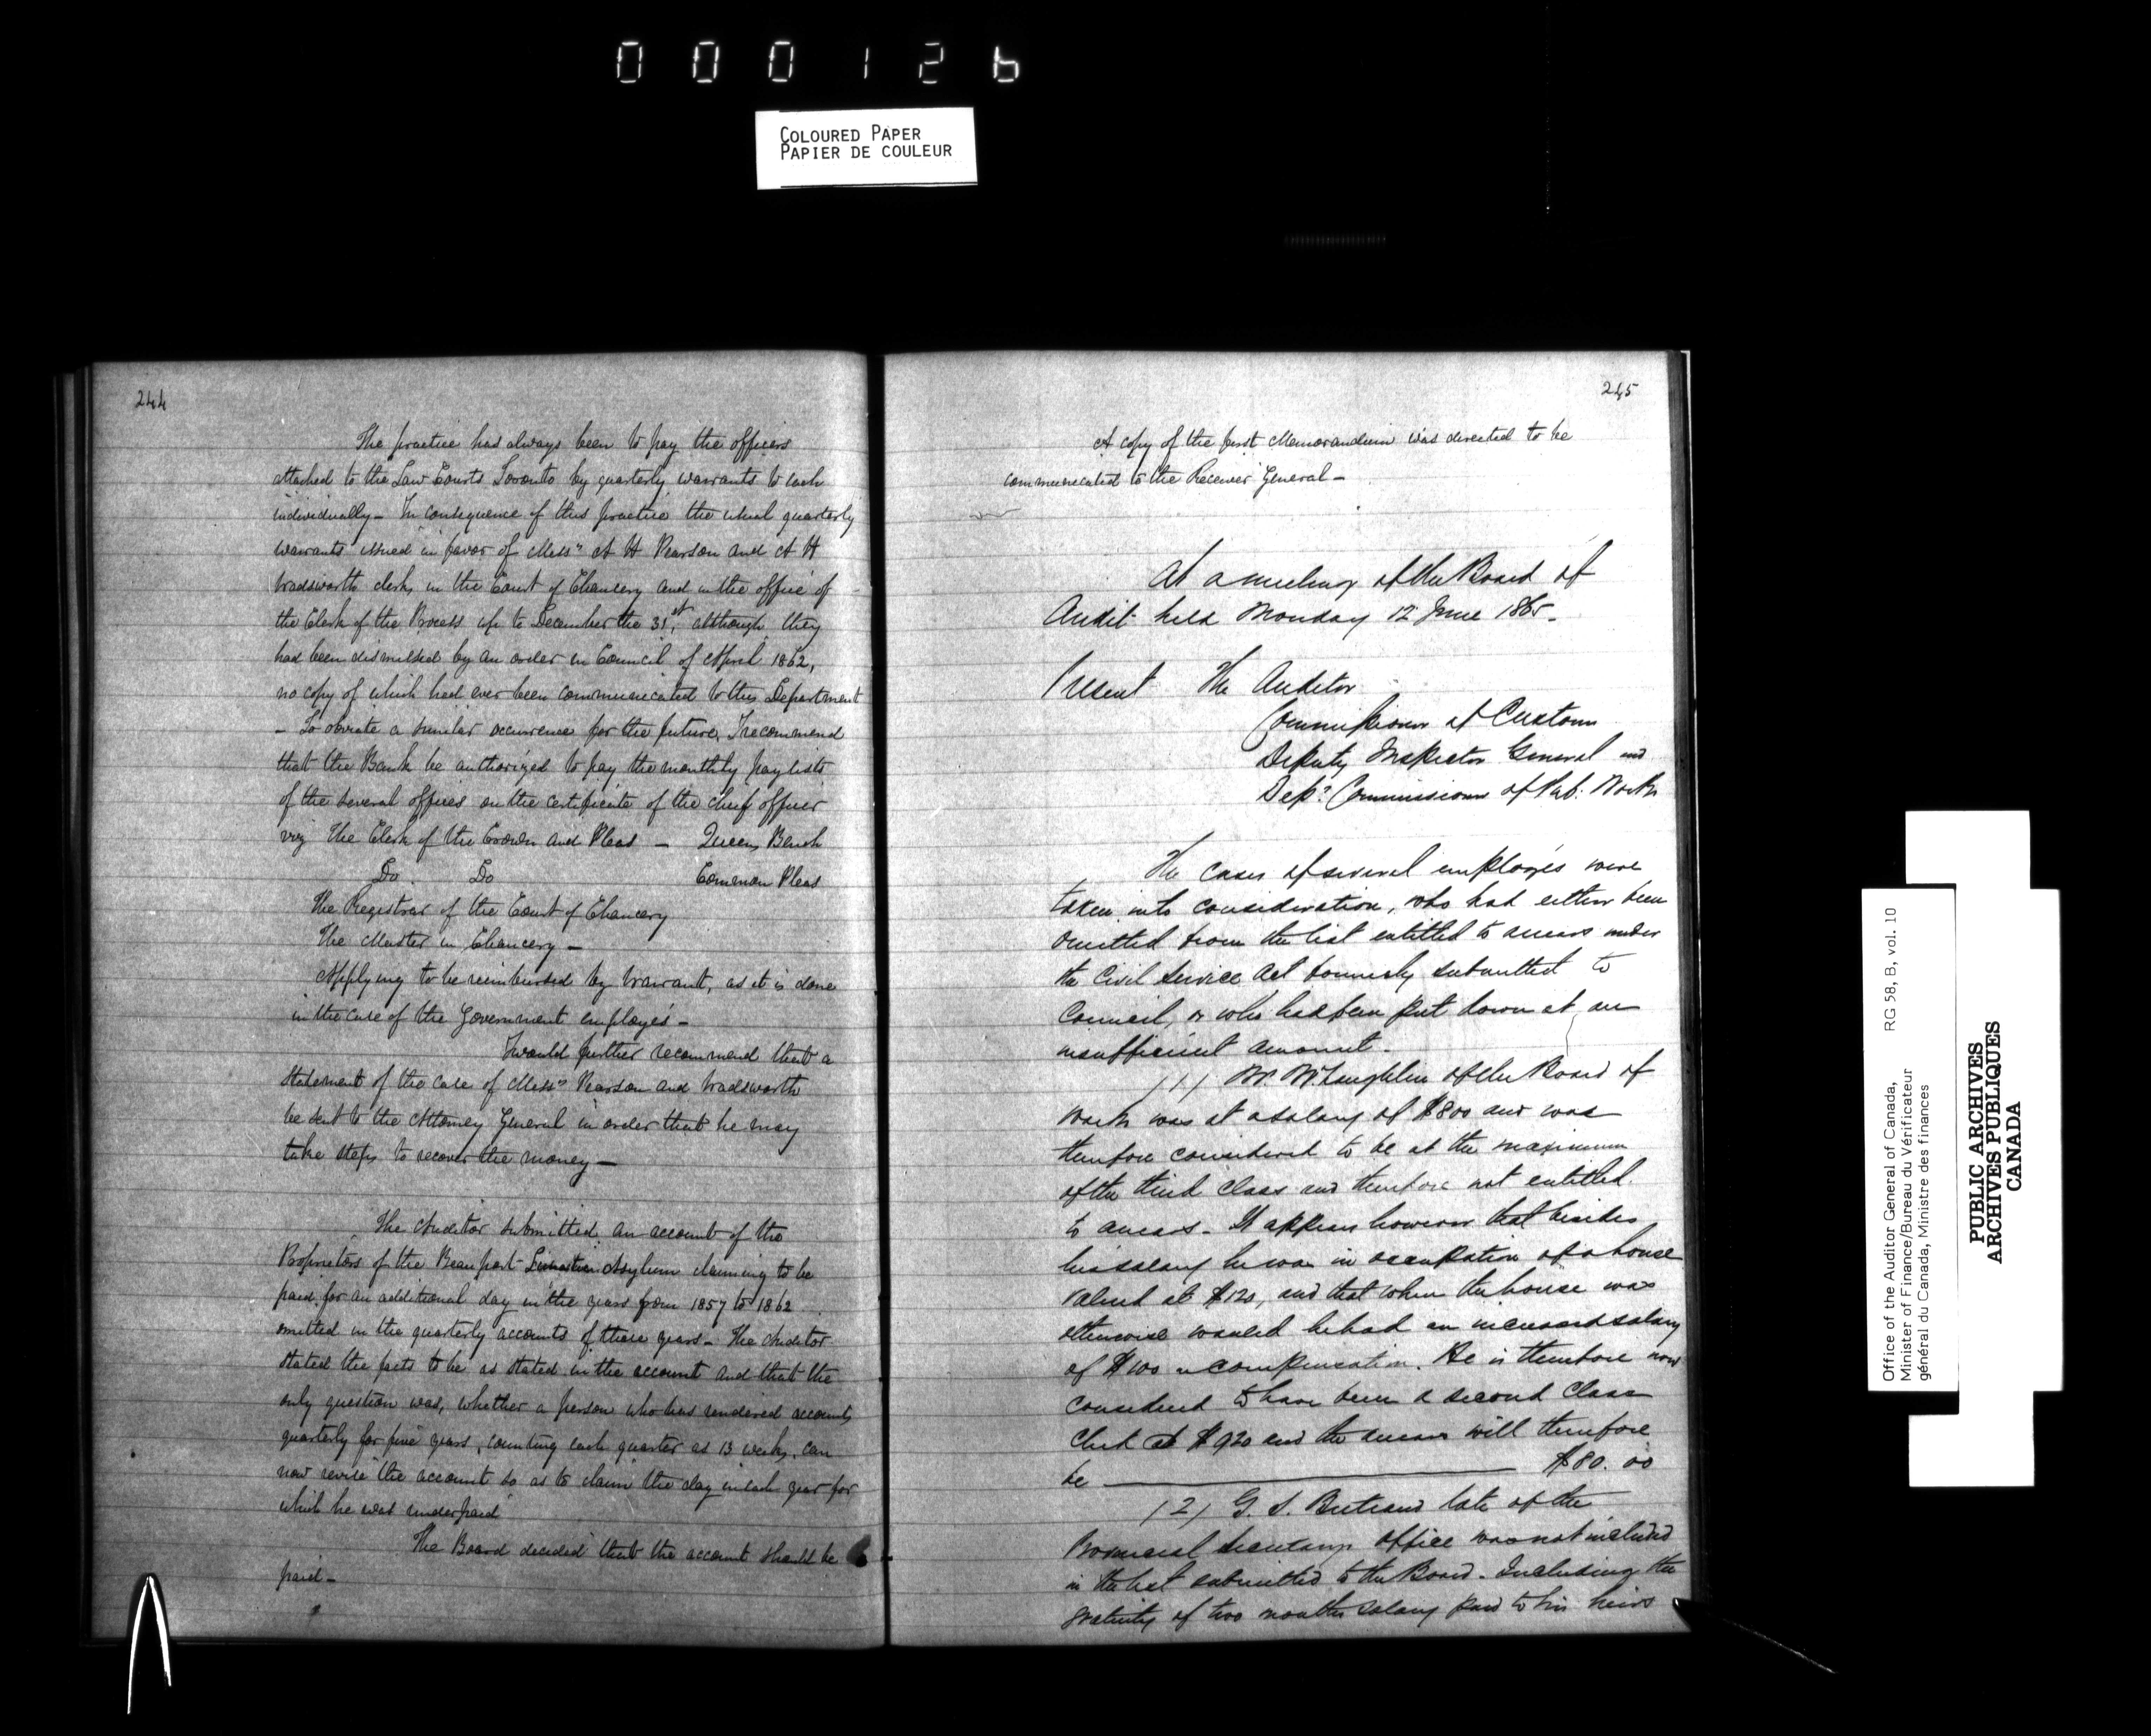 000126
COLOURED PAPER
PAPIER DE COULEUR
244
The practice has always been to pay the officers
attached to the Law Courts Toronto by quarterly warrants to each
individually – In consequence of this practice the usual quarterly
warrants issued in favor of Mess's A H Pearson and A H
Wadsworth clerks in the Court of Chancery and in the office of
the Clerk of the Process up to December the 31st, although they
had been dismissed by an order in Council of April 1862,
no copy of which had ever been communicated to this Department
– To obviate a similar occurrence for the future, I recommend
that the Bank be authorized to pay the monthly pay lists
of the several offices on the certificate of the chief officer
viz The Clerk of the Crown and Pleas – Queens Bench
Do Do Common Pleas
The Registrar of the Court of Chancery
The Master in Chancery –
Applying to be reimbursed by Warrant, as it is done
in the case of the Government employés –
I would further recommend that a
statement of the case of Mess's Pearson and Wadsworth
be sent to the Attorney General in order that he may
take steps to recover the money –
The Auditor submitted an account of the
Proprietors of the Beauport Asylum claiming to be
paid for an additional day in the years from 1857 to 1862
omitted in the quarterly accounts of these years – The Auditor
stated the facts to be as stated in the account and that the
only question was, whether a person who has rendered accounts
quarterly for five years, counting each quarter as 13 weeks, can
now revise the account so as to claim the day in each year for
which he was underpaid
The Board decided that the account should be
paid –
245
A copy of the first Memorandum was directed to be
communicated to the Receiver General –
At a meeting of the Board of
Audit held Monday 12 June 1865 –
Present The Auditor
Commissioner of Customs
Deputy Inspector General and
Dep: Commissioner of Pub: Works
The cases of several employés were
taken into consideration, who had either been
omitted from the list entitled to arrears under
the Civil Service Act formerly submitted to
Council, or who had been put down at an
insufficient amount.
(1) Mr. McLaughlin of the Board of
Works was at a salary of $800 and was
therefore considered to be at the maximum
of the third class and therefore not entitled
to arrears – It appears however that besides
his salary he was in occupation of a house
valued at $120, and that when the house was
otherwise wanted he had an increased salary
of $100 compensation. He is therefore now
considered to have been a second class
clerk at $920 and the arrears will therefore
be $80.00
(2) G. S. Bertrand late of the
Provincial Secretarys office was not included
in the list submitted to the Board – Including the
gratuity of two months salary paid to his heirs
Office of the Auditor General of Canada,
Minister of Finance/Bureau du Vérificateur
général du Canada, Ministre des finances
RG 58, B, vol. 10
PUBLIC ARCHIVES
ARCHIVES PUBLIQUES
CANADA